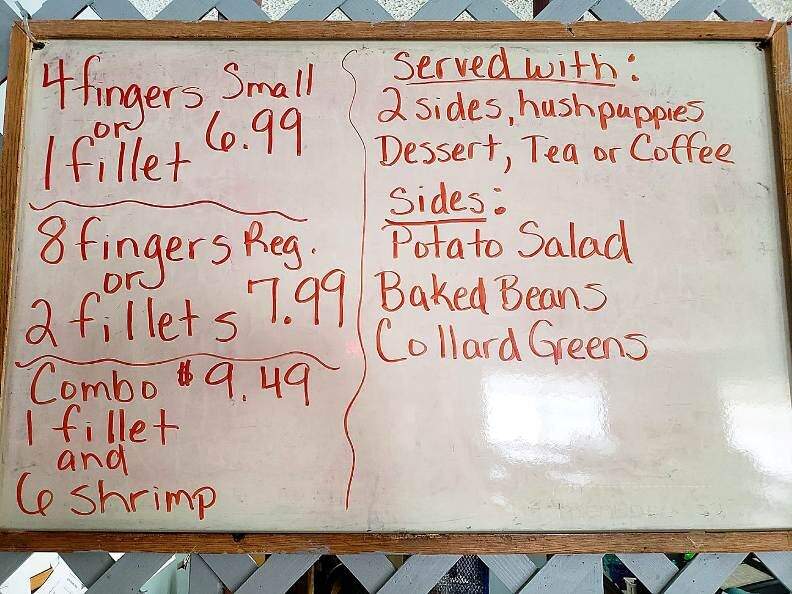 4 fingers Small
or 6.99
1 fillet
8 fingers Reg.
or 7.99
2 fillets
Combo $9.49
1 fillet
and
6 shrimp
Served with:
2 sides, hushpuppies
Dessert, Tea or Coffee
Sides:
Potato Salad
Baked Beans
Collard Greens